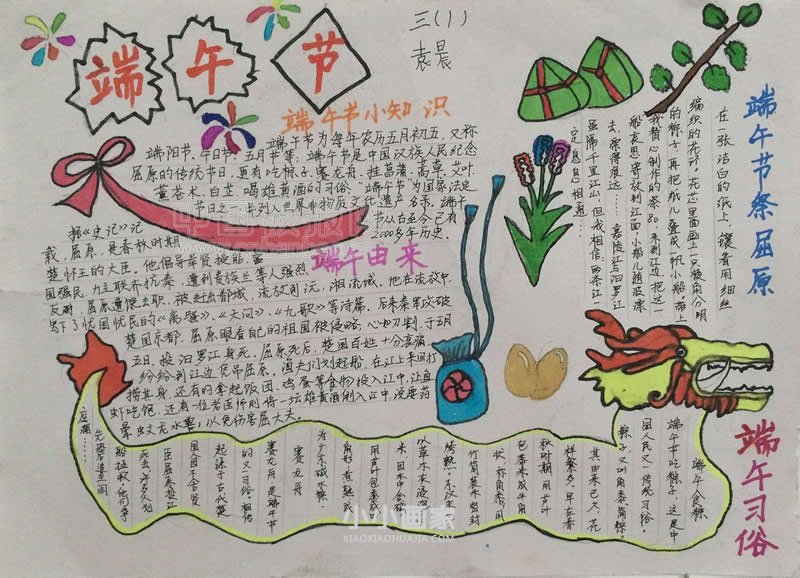 端午节
三(1)
袁晨
端午节小知识
端午节为每年农历五月初五，又称
端阳节、午日节、五月节等；端午节是中国汉族人民纪念
屈原的传统节日，更有吃粽子，赛龙舟，挂菖蒲，蒿草，艾叶
薰苍术，白芷，喝雄黄酒的习俗。“端午节”为国家法定
节日之一，并列入世界非物质文化遗产名录。端午
节从古至今已有
2000多年历史。
端午由来
据《史记》记
载，屈原，是春秋时期
楚怀王的大臣。他倡导举贤授能，富
国强兵，力主联齐抗秦，遭到贵族子兰等人强烈
反对，屈原遭馋去职，被赶出都城，流放到沅、湘流域。他在流放中，
写下了忧国忧民的《离骚》、《天问》、《九歌》等诗篇，后来秦军攻破
楚国京都，屈原眼看自己的祖国被侵略，心如刀割，于五月
五日，投汨罗江身死。屈原死后，楚国百姓十分哀痛
纷纷到江边凭吊屈原。渔夫们划起船，在江上来回打
捞其身，还有的拿起饭团、鸡蛋等食物投入江中，让鱼
虾吃饱，还有一位老医师则将一坛雄黄酒倒入江中，说要药
晕蛟龙水兽，以免伤害屈大夫。
端午节祭屈原
在一张洁白的纸上，镶着用细丝
编织的花边，花芯里面画上一只棱角分明
的粽子，再把纸儿叠成一帆小船，带上
去，荣得很远……嘉陵江与汨罗江
虽隔千里江山，但我相信，两条江一
定息息相通……
端午习俗
端午食粽
端午节吃粽子，这是中
国人民又一传统习俗。
粽子又叫角黍筒粽。
其由来已久，花
样繁多。早在春
秋时期，用菰叶
包黍米成牛角
状，称角黍，用
竹筒装米密封
烤熟，东汉末
以草木灰浸泡
米，因水中含碱
用菰叶包黍成
角形，煮熟成
为广东碱水粽
赛龙舟
赛龙舟，是端午节
的又一习俗。相传
起源于古代楚
国因不舍贤
臣屈原投江
死去，许多人划
船拯救，他们争
先恐后，追至洞
庭湖……
中国板报
小小画家
XIAOXIAOHUAJIA.COM